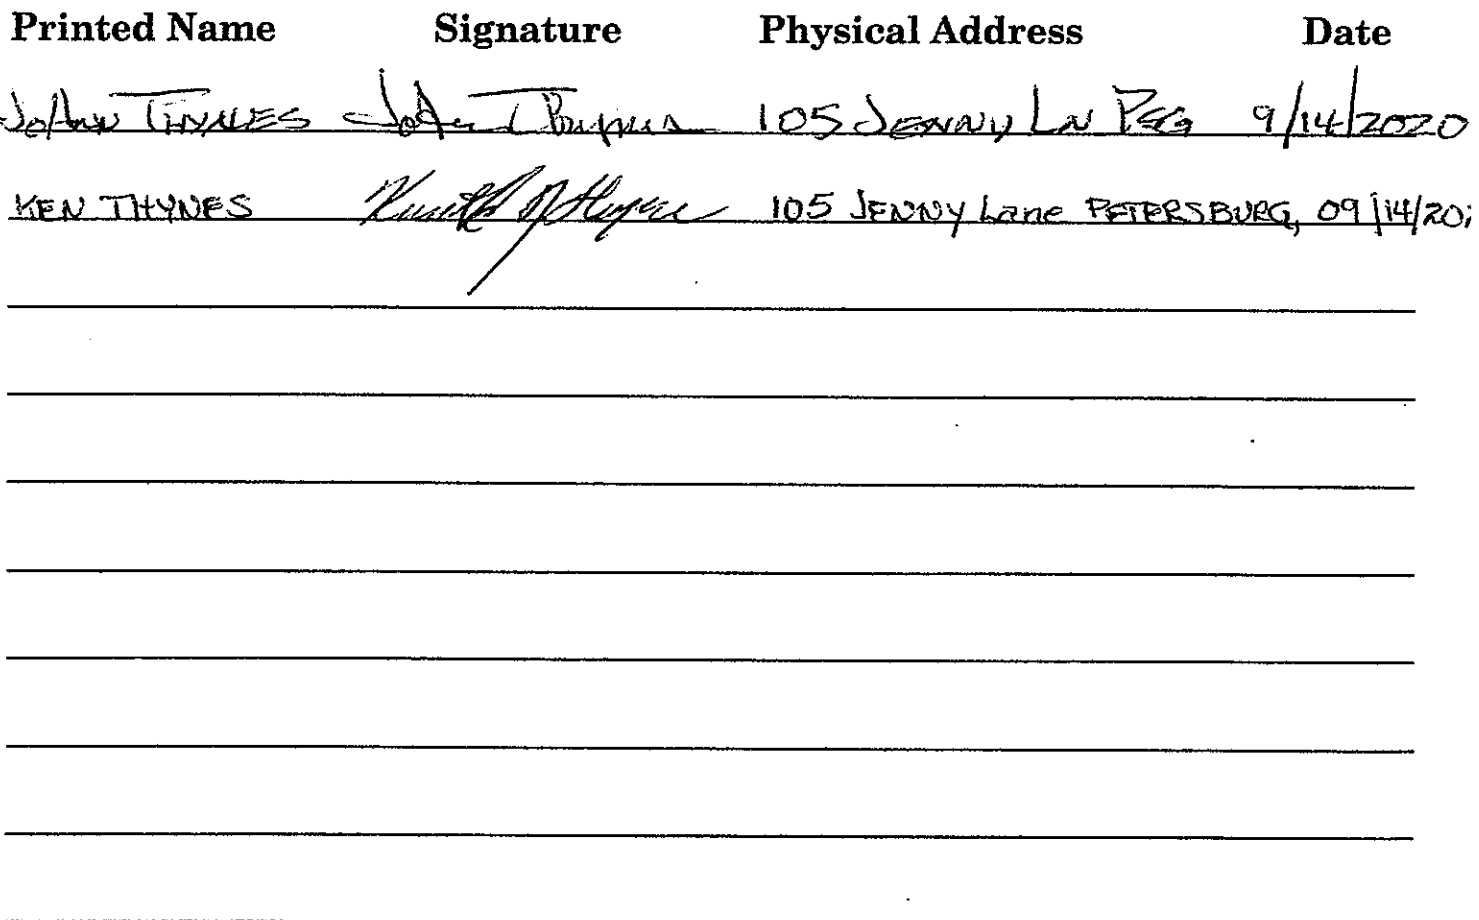 Printed Name Signature Physical Address Date
JoAnn THYNES JoAnn Thynes 105 JENNY LN PSG 9/14/2020
KEN THYNES 105 JENNY Lane PETERSBURG, 09/14/20